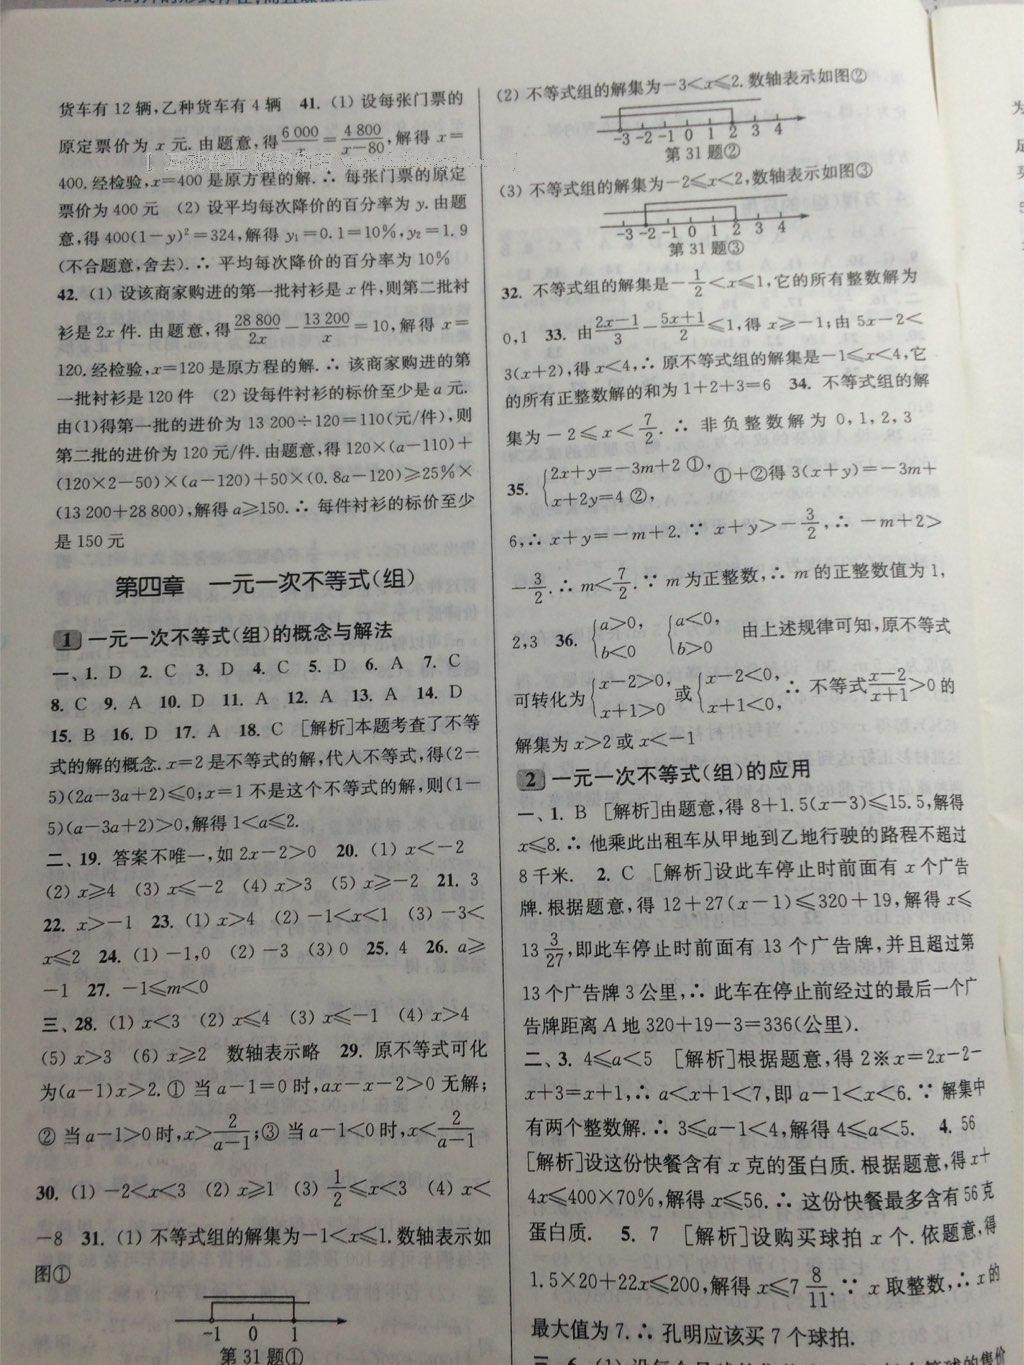 货车有 12 辆,乙种货车有 4 辆　41. (1) 设每张门票的
原定票价为 x 元. 由题意,得 6 000/x = 4 800/(x-80),解得 x=
400. 经检验,x=400 是原方程的解. ∴ 每张门票的原定
票价为 400 元　(2) 设平均每次降价的百分率为 y. 由题
意,得 400(1-y)²=324,解得 y₁=0.1=10%,y₂=1.9
(不合题意,舍去). ∴ 平均每次降价的百分率为 10%
42. (1) 设该商家购进的第一批衬衫是 x 件,则第二批衬
衫是 2x 件. 由题意,得 28 800/2x - 13 200/x = 10,解得 x=
120. 经检验,x=120 是原方程的解. ∴ 该商家购进的第
一批衬衫是 120 件　(2) 设每件衬衫的标价至少是 a 元.
由(1)得第一批的进价为 13 200÷120=110(元/件),则
第二批的进价为 120 元/件. 由题意,得 120×(a-110)+
(120×2-50)×(a-120)+50×(0.8a-120)≥25%×
(13 200+28 800),解得 a≥150. ∴ 每件衬衫的标价至少
是 150 元
第四章　一元一次不等式(组)
1 一元一次不等式(组)的概念与解法
一、1. D　2. C　3. D　4. C　5. D　6. A　7. C
8. C　9. A　10. D　11. A　12. A　13. A　14. D
15. B　16. D　17. A　18. C　[解析]本题考查了不等
式的解的概念. x=2 是不等式的解,代人不等式,得(2-
5)(2a-3a+2)≤0;x=1 不是这个不等式的解,则(1-
5)(a-3a+2)>0,解得 1<a≤2.
二、19. 答案不唯一,如 2x-2>0　20. (1) x<-2
(2) x≥4　(3) x≤-2　(4) x>3　(5) x≥-2　21. 3
22. x>-1　23. (1) x>4　(2) -1<x<1　(3) -3<
x≤2　24. (1) -1,0　(2) -3　(3) 0　25. 4　26. a≥
-1　27. -1≤m<0
三、28. (1) x<3　(2) x≤4　(3) x≤-1　(4) x>4
(5) x>3　(6) x≥2　数轴表示略　29. 原不等式可化
为(a-1)x>2. ① 当 a-1=0 时,ax-x-2>0 无解;
② 当 a-1>0 时,x>2/(a-1);③ 当 a-1<0 时,x<2/(a-1)
30. (1) -2<x<3　(2) x≥1　(3) 1/2≤x<3　(4) x<
-8　31. (1) 不等式组的解集为-1<x≤1. 数轴表示如
图①
-1 0 1
第 31 题①
(2) 不等式组的解集为-3<x≤2. 数轴表示如图②
-3 -2 -1 0 1 2 3 4
第 31 题②
(3) 不等式组的解集为-2≤x<2,数轴表示如图③
-3 -2 -1 0 1 2 3 4
第 31 题③
32. 不等式组的解集是-1/2<x≤1,它的所有整数解为
0,1　33. 由 (2x-1)/3 - (5x+1)/2 ≤1,得 x≥-1;由 5x-2<
3(x+2),得 x<4,∴ 原不等式组的解集是-1≤x<4,它
的所有正整数解的和为 1+2+3=6　34. 不等式组的解
集为-2≤x<7/2. ∴ 非负整数解为 0,1,2,3
35. {2x+y=-3m+2 ①, x+2y=4 ②, ①+②得 3(x+y)=-3m+
6,∴ x+y=-m+2. ∵ x+y>-3/2,∴ -m+2>
-3/2. ∴ m<7/2. ∵ m 为正整数,∴ m 的正整数值为 1,
2,3　36. {a>0, b<0　{a<0, b>0　由上述规律可知,原不等式
可转化为{x-2>0, x+1>0 或{x-2<0, x+1<0, ∴ 不等式 (x-2)/(x+1)>0 的
解集为 x>2 或 x<-1
2 一元一次不等式(组)的应用
一、1. B　[解析]由题意,得 8+1.5(x-3)≤15.5,解得
x≤8. ∴ 他乘此出租车从甲地到乙地行驶的路程不超过
8 千米.　2. C　[解析]设此车停止时前面有 x 个广告
牌. 根据题意,得 12+27(x-1)≤320+19,解得 x≤
13 3/27,即此车停止时前面有 13 个广告牌,并且超过第
13 个广告牌 3 公里,∴ 此车在停止前经过的最后一个广
告牌距离 A 地 320+19-3=336(公里).
二、3. 4≤a<5　[解析]根据题意,得 2※x=2x-2-
x+3=x+1,∴ a<x+1<7,即 a-1<x<6. ∵ 解集中
有两个整数解. ∴ 3≤a-1<4,解得 4≤a<5.　4. 56
[解析]设这份快餐含有 x 克的蛋白质. 根据题意,得 x+
4x≤400×70%,解得 x≤56. ∴ 这份快餐最多含有 56 克
蛋白质.　5. 7　[解析]设购买球拍 x 个. 依题意,得
1.5×20+22x≤200,解得 x≤7 8/11. ∵ x 取整数,∴ x 的
最大值为 7. ∴ 孔明应该买 7 个球拍.